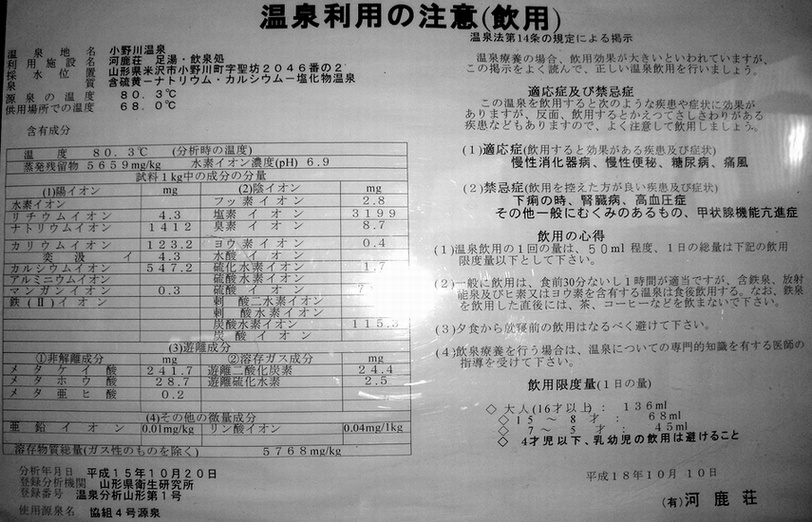 温泉利用の注意(飲用)
温泉法第14条の規定による掲示
温泉地名 小野川温泉
利用施設名 河鹿荘 足湯・飲泉処
採水位置 山形県米沢市小野川町字聖坊2046番の2
泉質 含硫黄－ナトリウム・カルシウム－塩化物温泉
源泉の温度 80.3℃
供用場所での温度 68.0℃
含有成分
温度 80.3℃ (分析時の温度)
蒸発残留物 5659mg/kg 水素イオン濃度(pH) 6.9
試料1kg中の成分の分量
(1)陽イオン mg (2)陰イオン mg
水素イオン フッ素イオン 2.8
リチウムイオン 4.3 塩素イオン 3199
ナトリウムイオン 1412 臭素イオン 8.7
カリウムイオン 123.2 ヨウ素イオン 0.4
イ 4.3 水酸イオン
カルシウムイオン 547.2 硫化水素イオン 1.7
アルミニウムイオン 硫酸水素イオン
マンガンイオン 0.3 硫酸イオン
鉄(Ⅱ)イオン 酸二水素イオン
酸水素イオン
炭酸水素イオン 115.3
炭酸イオン
(3)遊離成分
①非解離成分 mg ②溶存ガス成分 mg
メタケイ酸 241.7 遊離二酸化炭素 24.4
メタホウ酸 28.7 遊離硫化水素 2.5
メタ亜ヒ酸 0.2
(4)その他の微量成分
亜鉛イオン 0.01mg/kg リン酸イオン 0.04mg/1kg
溶存物質総量(ガス性のものを除く) 5768mg/kg
分析年月日 平成15年10月20日
登録分析機関 山形県衛生研究所
登録番号 温泉分析山形第1号
使用源泉名 協組4号源泉
温泉療養の場合、飲用効果が大きいといわれていますが、
この掲示をよく読んで、正しい温泉飲用を行いましょう。
適応症及び禁忌症
この温泉を飲用すると次のような疾患や症状に効果が
ありますが、反面、飲用するとかえってさしさわりがある
疾患などもありますので、よく注意して飲用しましょう。
(1)適応症(飲用すると効果がある疾患及び症状)
慢性消化器病、慢性便秘、糖尿病、痛風
(2)禁忌症(飲用を控えた方が良い疾患及び症状)
下痢の時、腎臓病、高血圧症
その他一般にむくみのあるもの、甲状腺機能亢進症
飲用の心得
(1)温泉飲用の1回の量は、50ml程度、1日の総量は下記の飲用
限度量以下として下さい。
(2)一般に飲用は、食前30分ないし1時間が適当ですが、含鉄泉、放射
能泉及びヒ素又はヨウ素を含有する温泉は食後飲用する。なお、鉄泉
を飲用した直後には、茶、コーヒーなどを飲まないで下さい。
(3)夕食から就寝前の飲用はなるべく避けて下さい。
(4)飲泉療養を行う場合は、温泉についての専門的知識を有する医師の
指導を受けて下さい。
飲用限度量(1日の量)
◇ 大人(16才以上): 136ml
◇ 15～8才: 68ml
◇ 7～5才: 45ml
◇ 4才児以下、乳幼児の飲用は避けること
平成18年10月10日
(有)河鹿荘